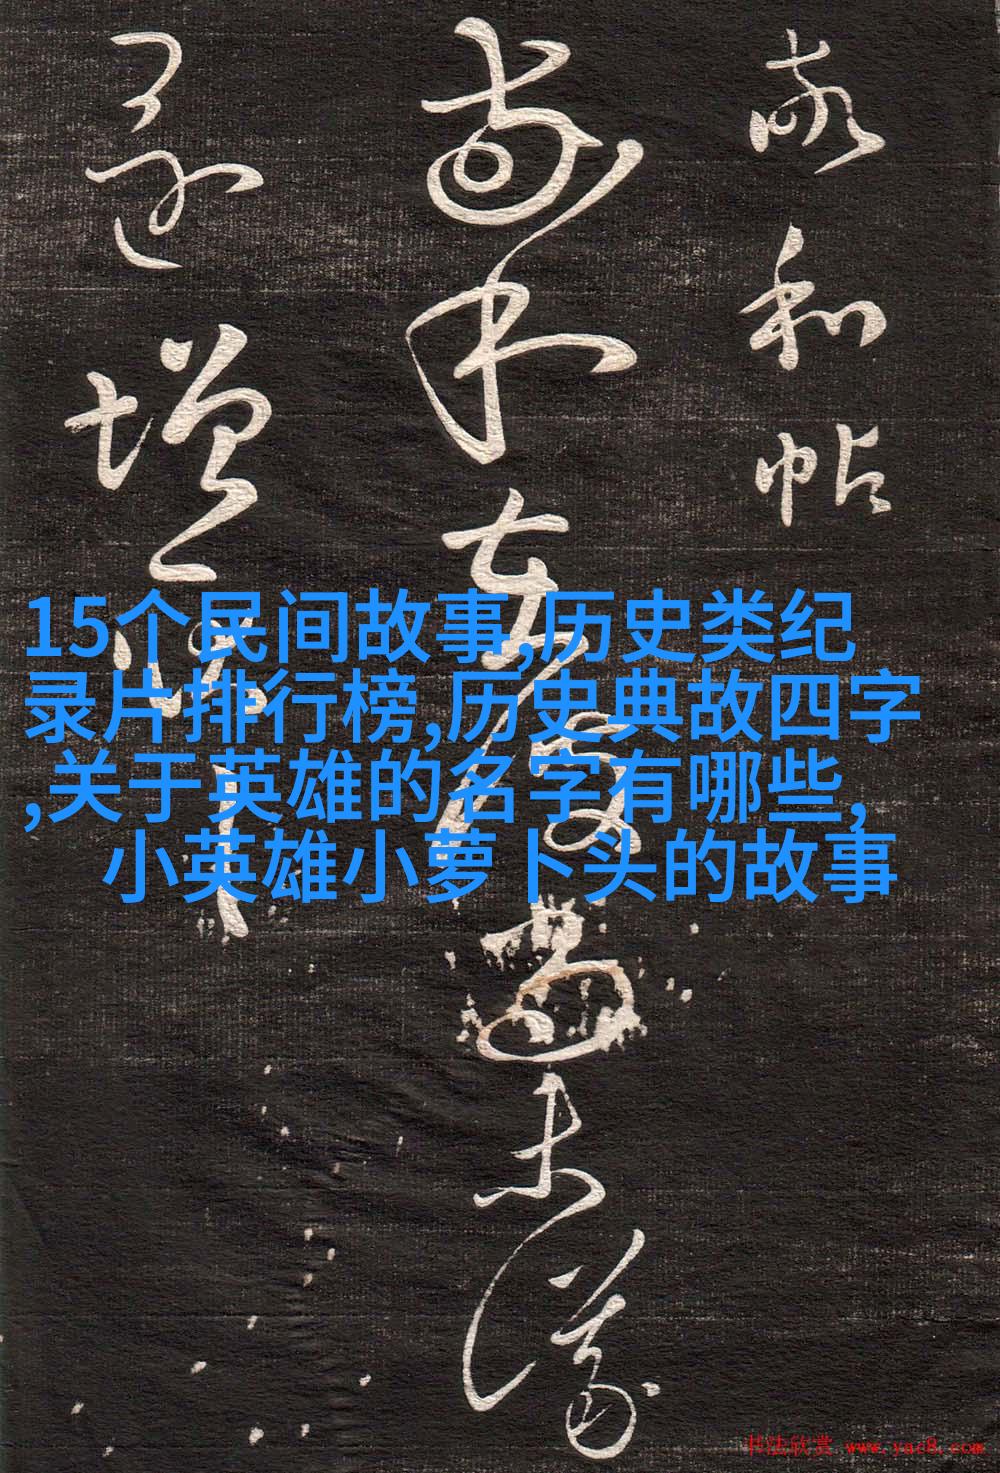 15个民间故事,历史类纪
录片排行榜,历史典故四字
,关于英雄的名字有哪些,
小英雄小萝卜头的故事
敬和帖
在 未
還增
书法欣赏 www.yac8.com